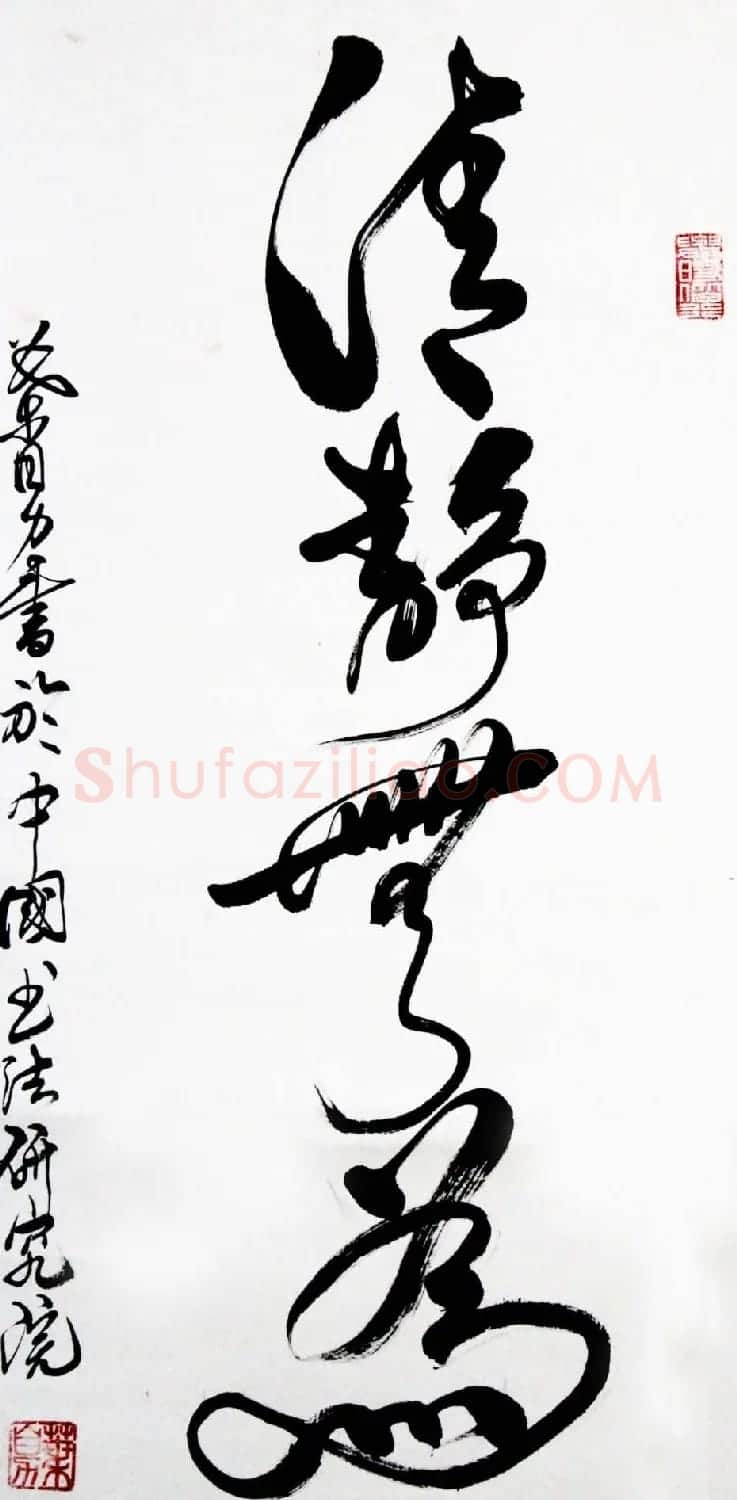 清靜無為
葉自勇書於中國書法研究院
Shufaziliao.COM